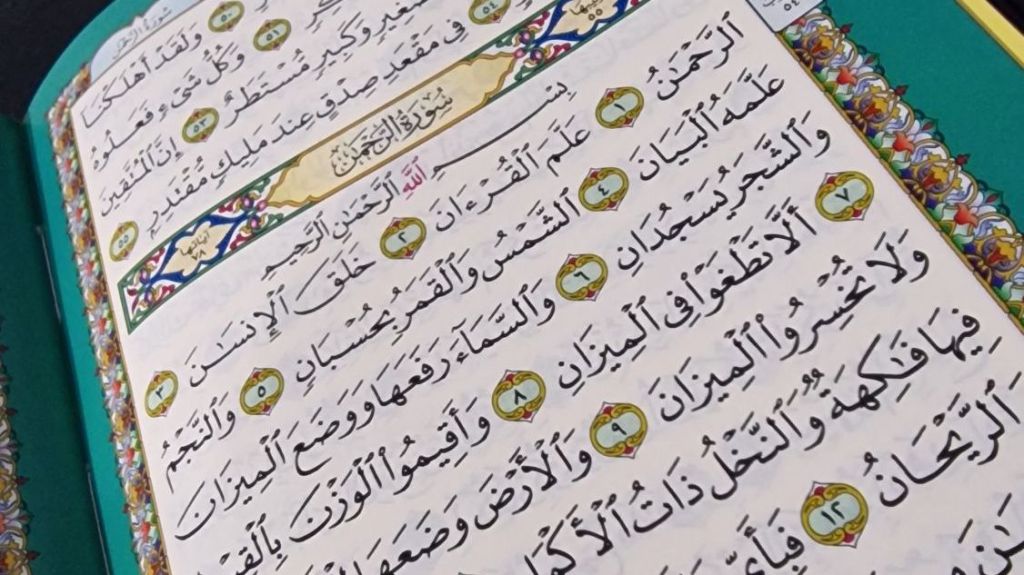 سُورَةُ القَمَر
٥٠ وَلَقَدْ أَهْلَكْنَا
٥١ وَكُلُّ شَىْءٍ فَعَلُوهُ
صَغِيرٍ وَكَبِيرٍ مُّسْتَطَرٌ ٥٣ إِنَّ ٱلْمُتَّقِينَ
٥٤ فِى مَقْعَدِ صِدْقٍ عِندَ مَلِيكٍ مُّقْتَدِرٍ ٥٥
سُورَةُ الرَّحْمَٰن
آيَاتُهَا ٧٨
بِسْمِ ٱللَّهِ ٱلرَّحْمَٰنِ ٱلرَّحِيمِ
ٱلرَّحْمَٰنُ ١ عَلَّمَ ٱلْقُرْءَانَ ٢ خَلَقَ ٱلْإِنسَٰنَ ٣
عَلَّمَهُ ٱلْبَيَانَ ٤ ٱلشَّمْسُ وَٱلْقَمَرُ بِحُسْبَانٍ ٥ وَٱلنَّجْمُ
وَٱلشَّجَرُ يَسْجُدَانِ ٦ وَٱلسَّمَآءَ رَفَعَهَا وَوَضَعَ ٱلْمِيزَانَ
٧ أَلَّا تَطْغَوْا۟ فِى ٱلْمِيزَانِ ٨ وَأَقِيمُوا۟ ٱلْوَزْنَ
وَلَا تُخْسِرُوا۟ ٱلْمِيزَانَ ٩ وَٱلْأَرْضَ وَضَعَهَا
فِيهَا فَٰكِهَةٌ وَٱلنَّخْلُ ذَاتُ
ٱلرَّيْحَانُ ١٢ فَبِأَىِّ